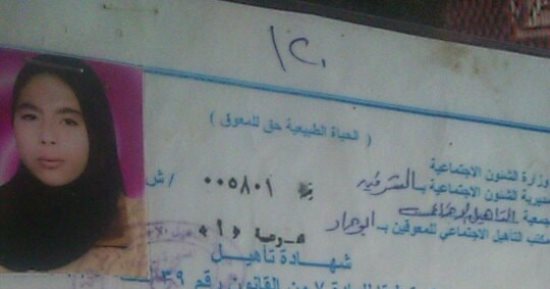 ١٢٠
( الحياة الطبيعية حق للمعوق )
وزارة الشئون الاجتماعية
مديرية الشئون الاجتماعية بالشرقية
جمعية التأهيل الاجتماعى
مكتب التأهيل الاجتماعى للمعوقين بـ ابو حماد
٠٠٥٨٠١ / ش
شهادة تأهيل
من القانون رقم ٣٩